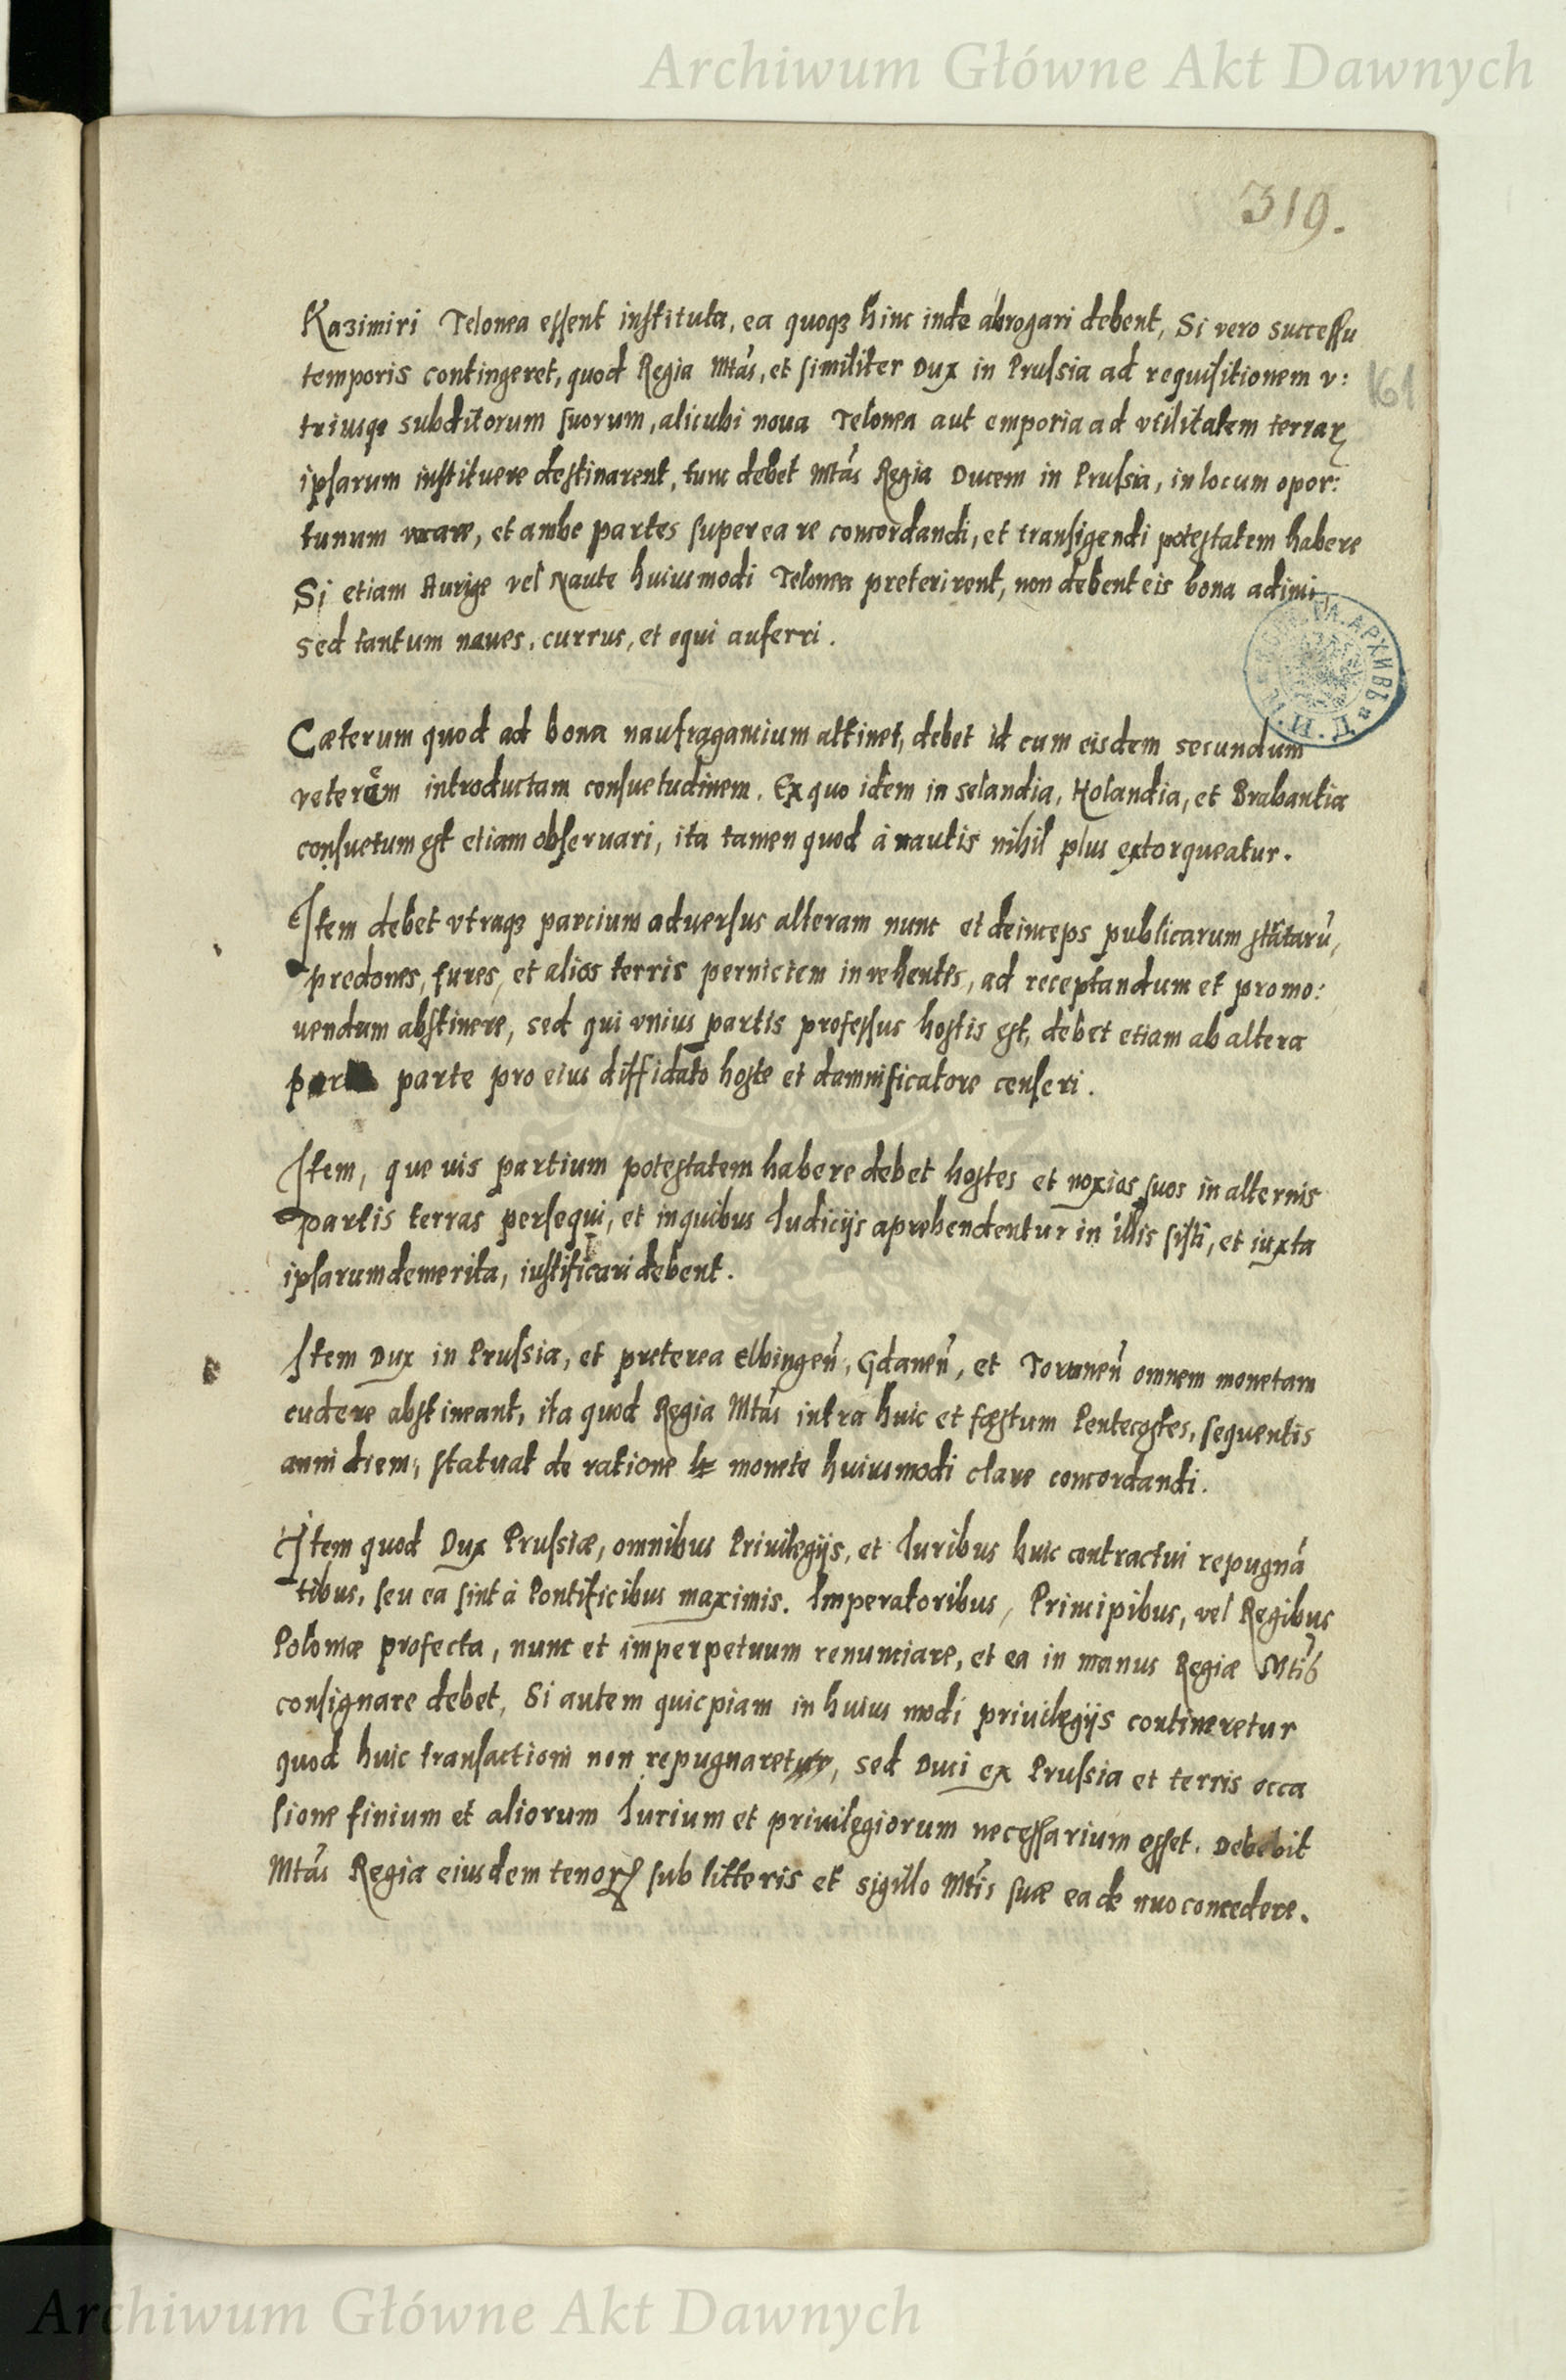 Archiwum Główne Akt Dawnych
319.
Kazimiri Telonea essent instituta, ea quoqꝫ hinc inde abrogari debent, Si vero successu
temporis contingeret, quod Regia Mtas, et similiter Dux in Prussia ad requisitionem v:
161
triusqꝫ subditorum suorum, alicubi noua Telonea aut emporia ad vtilitatem terraꝝ
ipsarum instituere destinarent, tunc debet Mtas Regia Ducem in Prussia, in locum opor:
tunum vocare, et ambe partes super ea re concordandi, et transigendi potestatem habere
Si etiam Aurige vel Naute huiusmodi Telonea preterirent, non debent eis bona adimi
sed tantum naues, currus, et equi auferri.
Cæterum quod ad bona naufragancium attinet, debet id cum eisdem secundum
veterem introductam consuetudinem. Ex quo idem in selandia, Holandia, et Brabantia
consuetum est etiam obseruari, ita tamen quod à nautis nihil plus extorqueatur.
Item debet vtraqꝫ parcium aduersus alteram nunc et deinceps publicarum stātarū,
predones, fures, et alios terris perniciem inuehentes, ad receptandum et promo:
uendum abstinere, sed qui vnius partis professus hostis est, debet etiam ab altera
parte pro eius diffidato hoste et damnificatore censeri.
Item, que uis partium potestatem habere debet hostes et noxios suos in alternis
partis terras persequi, et in quibus Iudicijs aprehendentur in illis sisti, et iuxta
ipsarum demerita, iustificari debent.
Item Dux in Prussia, et preterea Elbingeñ, Gdaneñ, et Toruneñ omnem monetam
cudere abstineant, ita quod Regia Mtas intra huic et fæstum Pentecostes, sequentis
anni diem, statuat de ratione monete huiusmodi clare concordandi.
Item quod Dux Prussiæ, omnibus Priuilegijs, et Iuribus huic contractui repugnā
tibus, seu ea sint à Pontificibus maximis. Imperatoribus, Principibus, vel Regibus
Poloniæ profecta, nunc et imperpetuum renunciare, et ea in manus Regiæ Mtis
consignare debet, Si autem quicpiam in huius modi priuilegijs contineretur
quod huic transactioni non repugnaret, sed Duci ex Prussia et terris occa
sione finium et aliorum Iurium et priuilegiorum necessarium esset. Debebit
Mtas Regia eiusdem tenoris sub litteris et sigillo Mtis suæ ea de nuo concedere.
Archiwum Główne Akt Dawnych